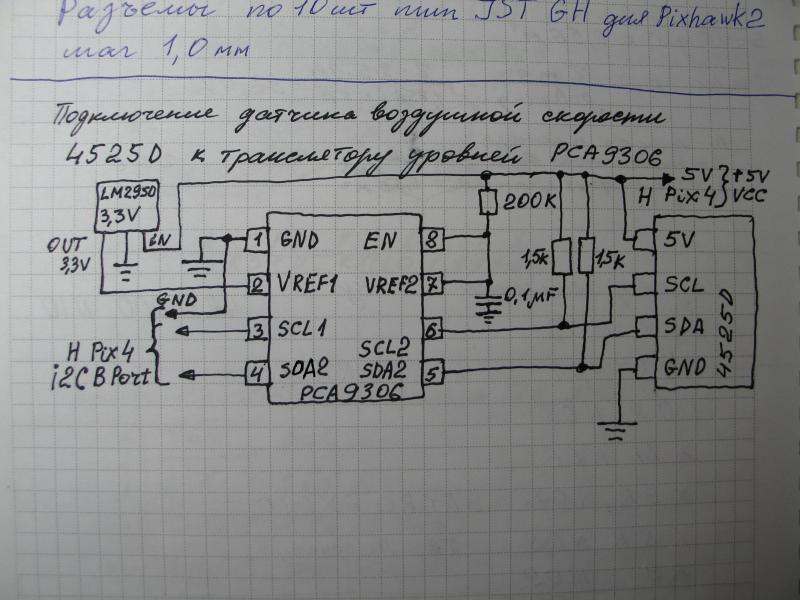 Разъемы по 10 шт тип JST GH для Pixhawk2
шаг 1,0 мм
Подключение датчика воздушной скорости
4525D к транслятору уровней PCA9306
LM2950
3,3V
OUT
3,3V
iN
5V
+5V
Н Pix4
VCC
200K
1,5K
1,5K
0,1µF
1 GND
EN 8
2 VREF1
VREF2 7
3 SCL1
6
SCL2
4 SDA2
SDA2 5
PCA9306
GND
Н Pix4
i2C B Port
5V
SCL
SDA
GND
4525D